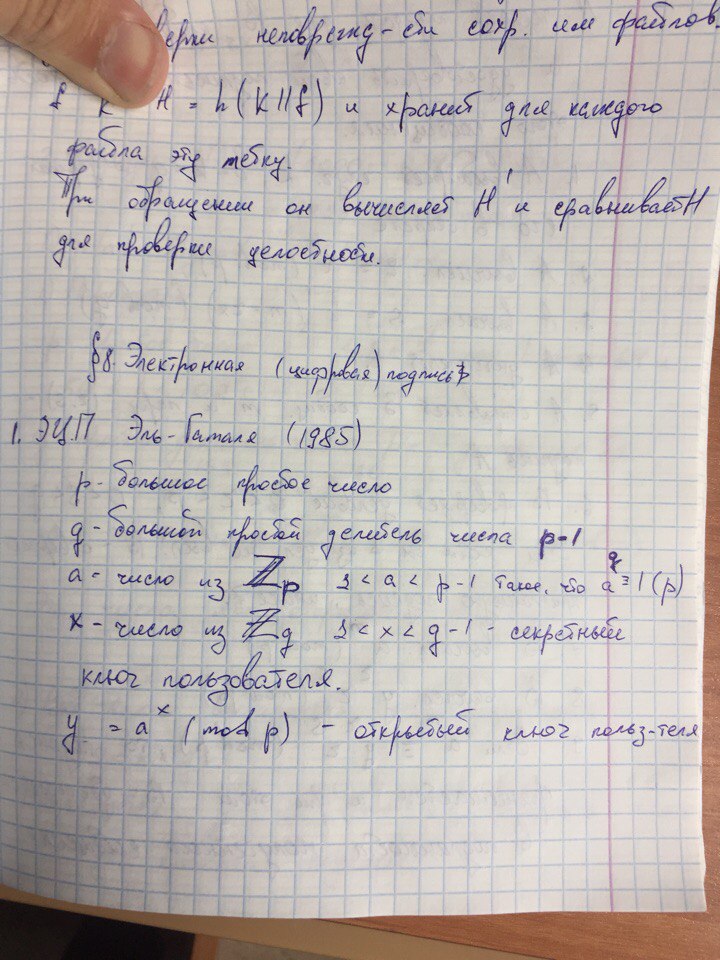 верки неповрежд-сти сохр. им файлов.
f K H = h(K||f) и хранит для каждого
файла эту метку.
При обращении он вычисляет H' и сравнивает H
для проверки целостности.
§8. Электронная (цифровая) подпись
1. ЭЦП Эль-Гамаля (1985)
p - большое простое число
q - большой простой делитель числа p-1
a - число из ℤp 1 < a < p-1 такое, что a^q ≡ 1(p)
x - число из ℤq 1 < x < q-1 - секретный
ключ пользователя.
y = a^x (mod p) - открытый ключ польз-теля